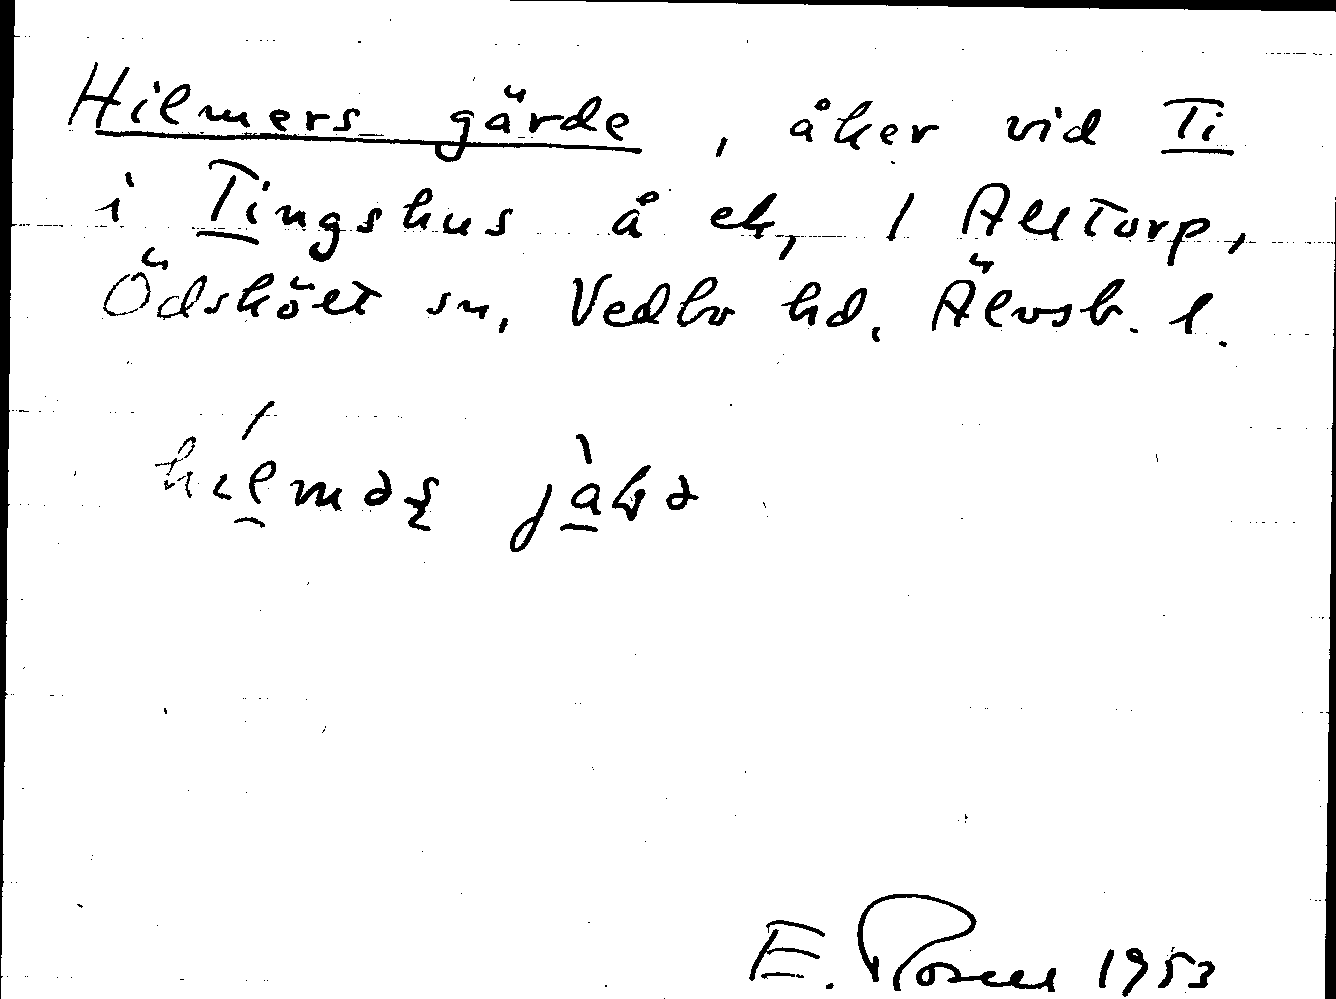 Hilmers gärde, åker vid Ti
i Tingshus å ek, 1 Alltorp,
Ödskölt sn, Vedbo hd, Älvsb. l.
E. Rosell 1953